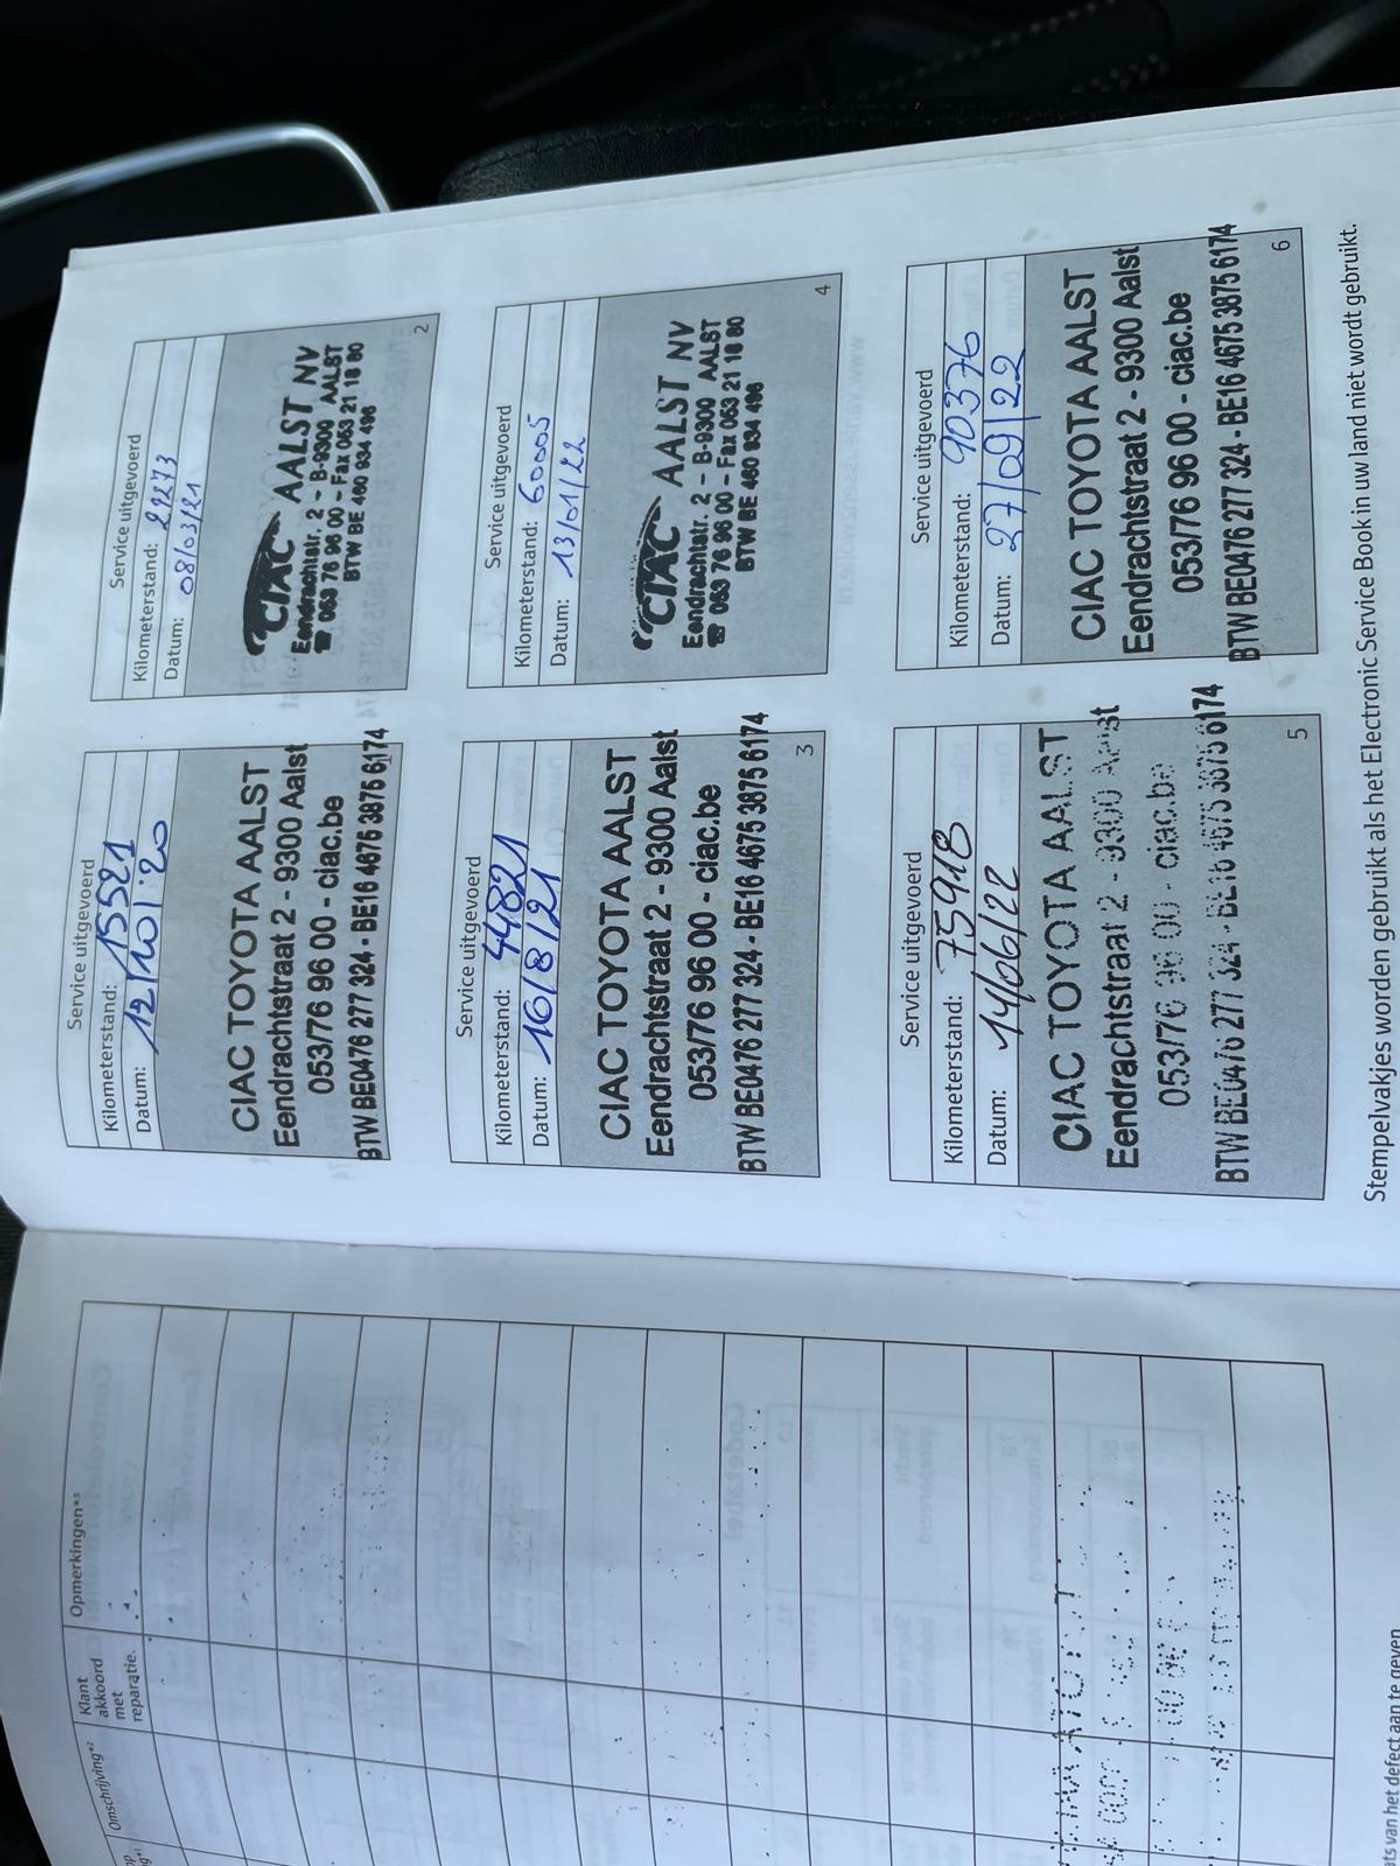 Service uitgevoerd
Kilometerstand: 15521
Datum: 12/10/20
CIAC TOYOTA AALST
Eendrachtstraat 2 - 9300 Aalst
053/76 96 00 - ciac.be
BTW BE0476 277 324 - BE16 4675 3875 6174
Service uitgevoerd
Kilometerstand: 29273
Datum: 08/03/21
CIAC AALST NV
Eendrachtstr. 2 - B-9300 AALST
☎ 053 76 96 00 - Fax 053 21 18 80
BTW BE 460 834 496
2
Service uitgevoerd
Kilometerstand: 44821
Datum: 16/8/21
CIAC TOYOTA AALST
Eendrachtstraat 2 - 9300 Aalst
053/76 96 00 - ciac.be
BTW BE0476 277 324 - BE16 4675 3875 6174
3
Service uitgevoerd
Kilometerstand: 60005
Datum: 13/01/22
CIAC AALST NV
Eendrachtstr. 2 - B-9300 AALST
☎ 053 76 96 00 - Fax 053 21 18 80
BTW BE 460 834 496
4
Service uitgevoerd
Kilometerstand: 75918
Datum: 14/06/22
CIAC TOYOTA AALST
Eendrachtstraat 2 - 9300 Aalst
053/76 96 00 - ciac.be
BTW BE0476 277 324 - BE16 4675 3875 6174
5
Service uitgevoerd
Kilometerstand: 90376
Datum: 27/09/22
CIAC TOYOTA AALST
Eendrachtstraat 2 - 9300 Aalst
053/76 96 00 - ciac.be
BTW BE0476 277 324 - BE16 4675 3875 6174
6
Stempelvakjes worden gebruikt als het Electronic Service Book in uw land niet wordt gebruikt.
Omschrijving*²
Klant
akkoord
met
reparatie.
Opmerkingen*³
van het defect aan te geven